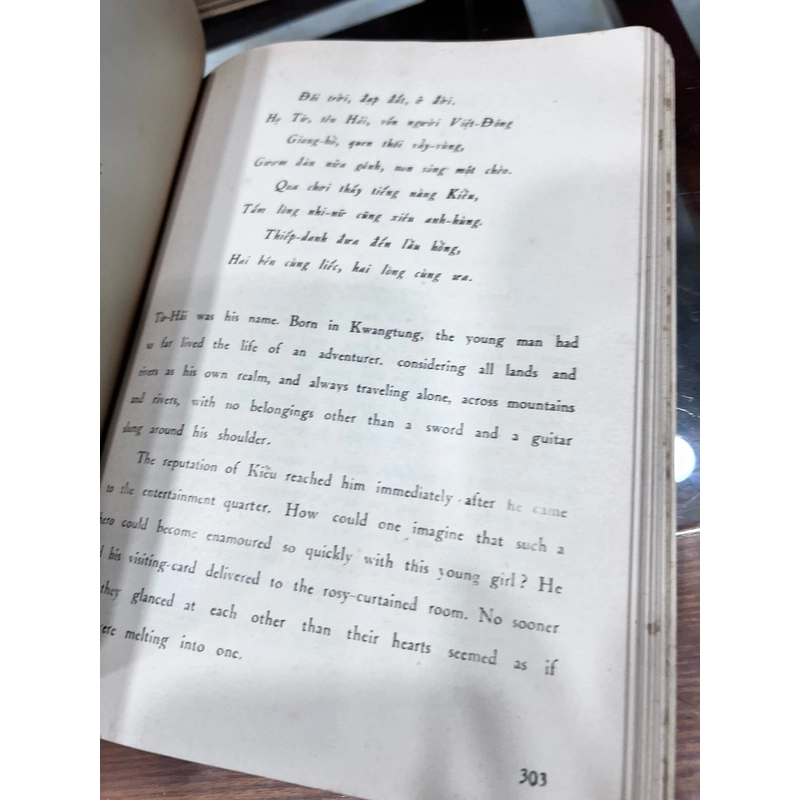 Đội trời, đạp đất, ở đời.
Họ Từ, tên Hải, vốn người Việt-Đông
Giang-hồ, quen thói vẫy-vùng,
Gươm đàn nửa gánh, non sông một chèo.
Qua chơi thấy tiếng nàng Kiều,
Tấm lòng nhi-nữ cũng xiêu anh-hùng.
Thiếp-danh đưa đến lầu hồng,
Hai bên cùng liếc, hai lòng cùng ưa.
Từ-Hải was his name. Born in Kwangtung, the young man had
so far lived the life of an adventurer, considering all lands and
rivers as his own realm, and always traveling alone, across mountains
and rivers, with no belongings other than a sword and a guitar
slung around his shoulder.
The reputation of Kiều reached him immediately after he came
to the entertainment quarter. How could one imagine that such a
hero could become enamoured so quickly with this young girl? He
his visiting-card delivered to the rosy-curtained room. No sooner
they glanced at each other than their hearts seemed as if
were melting into one.
303